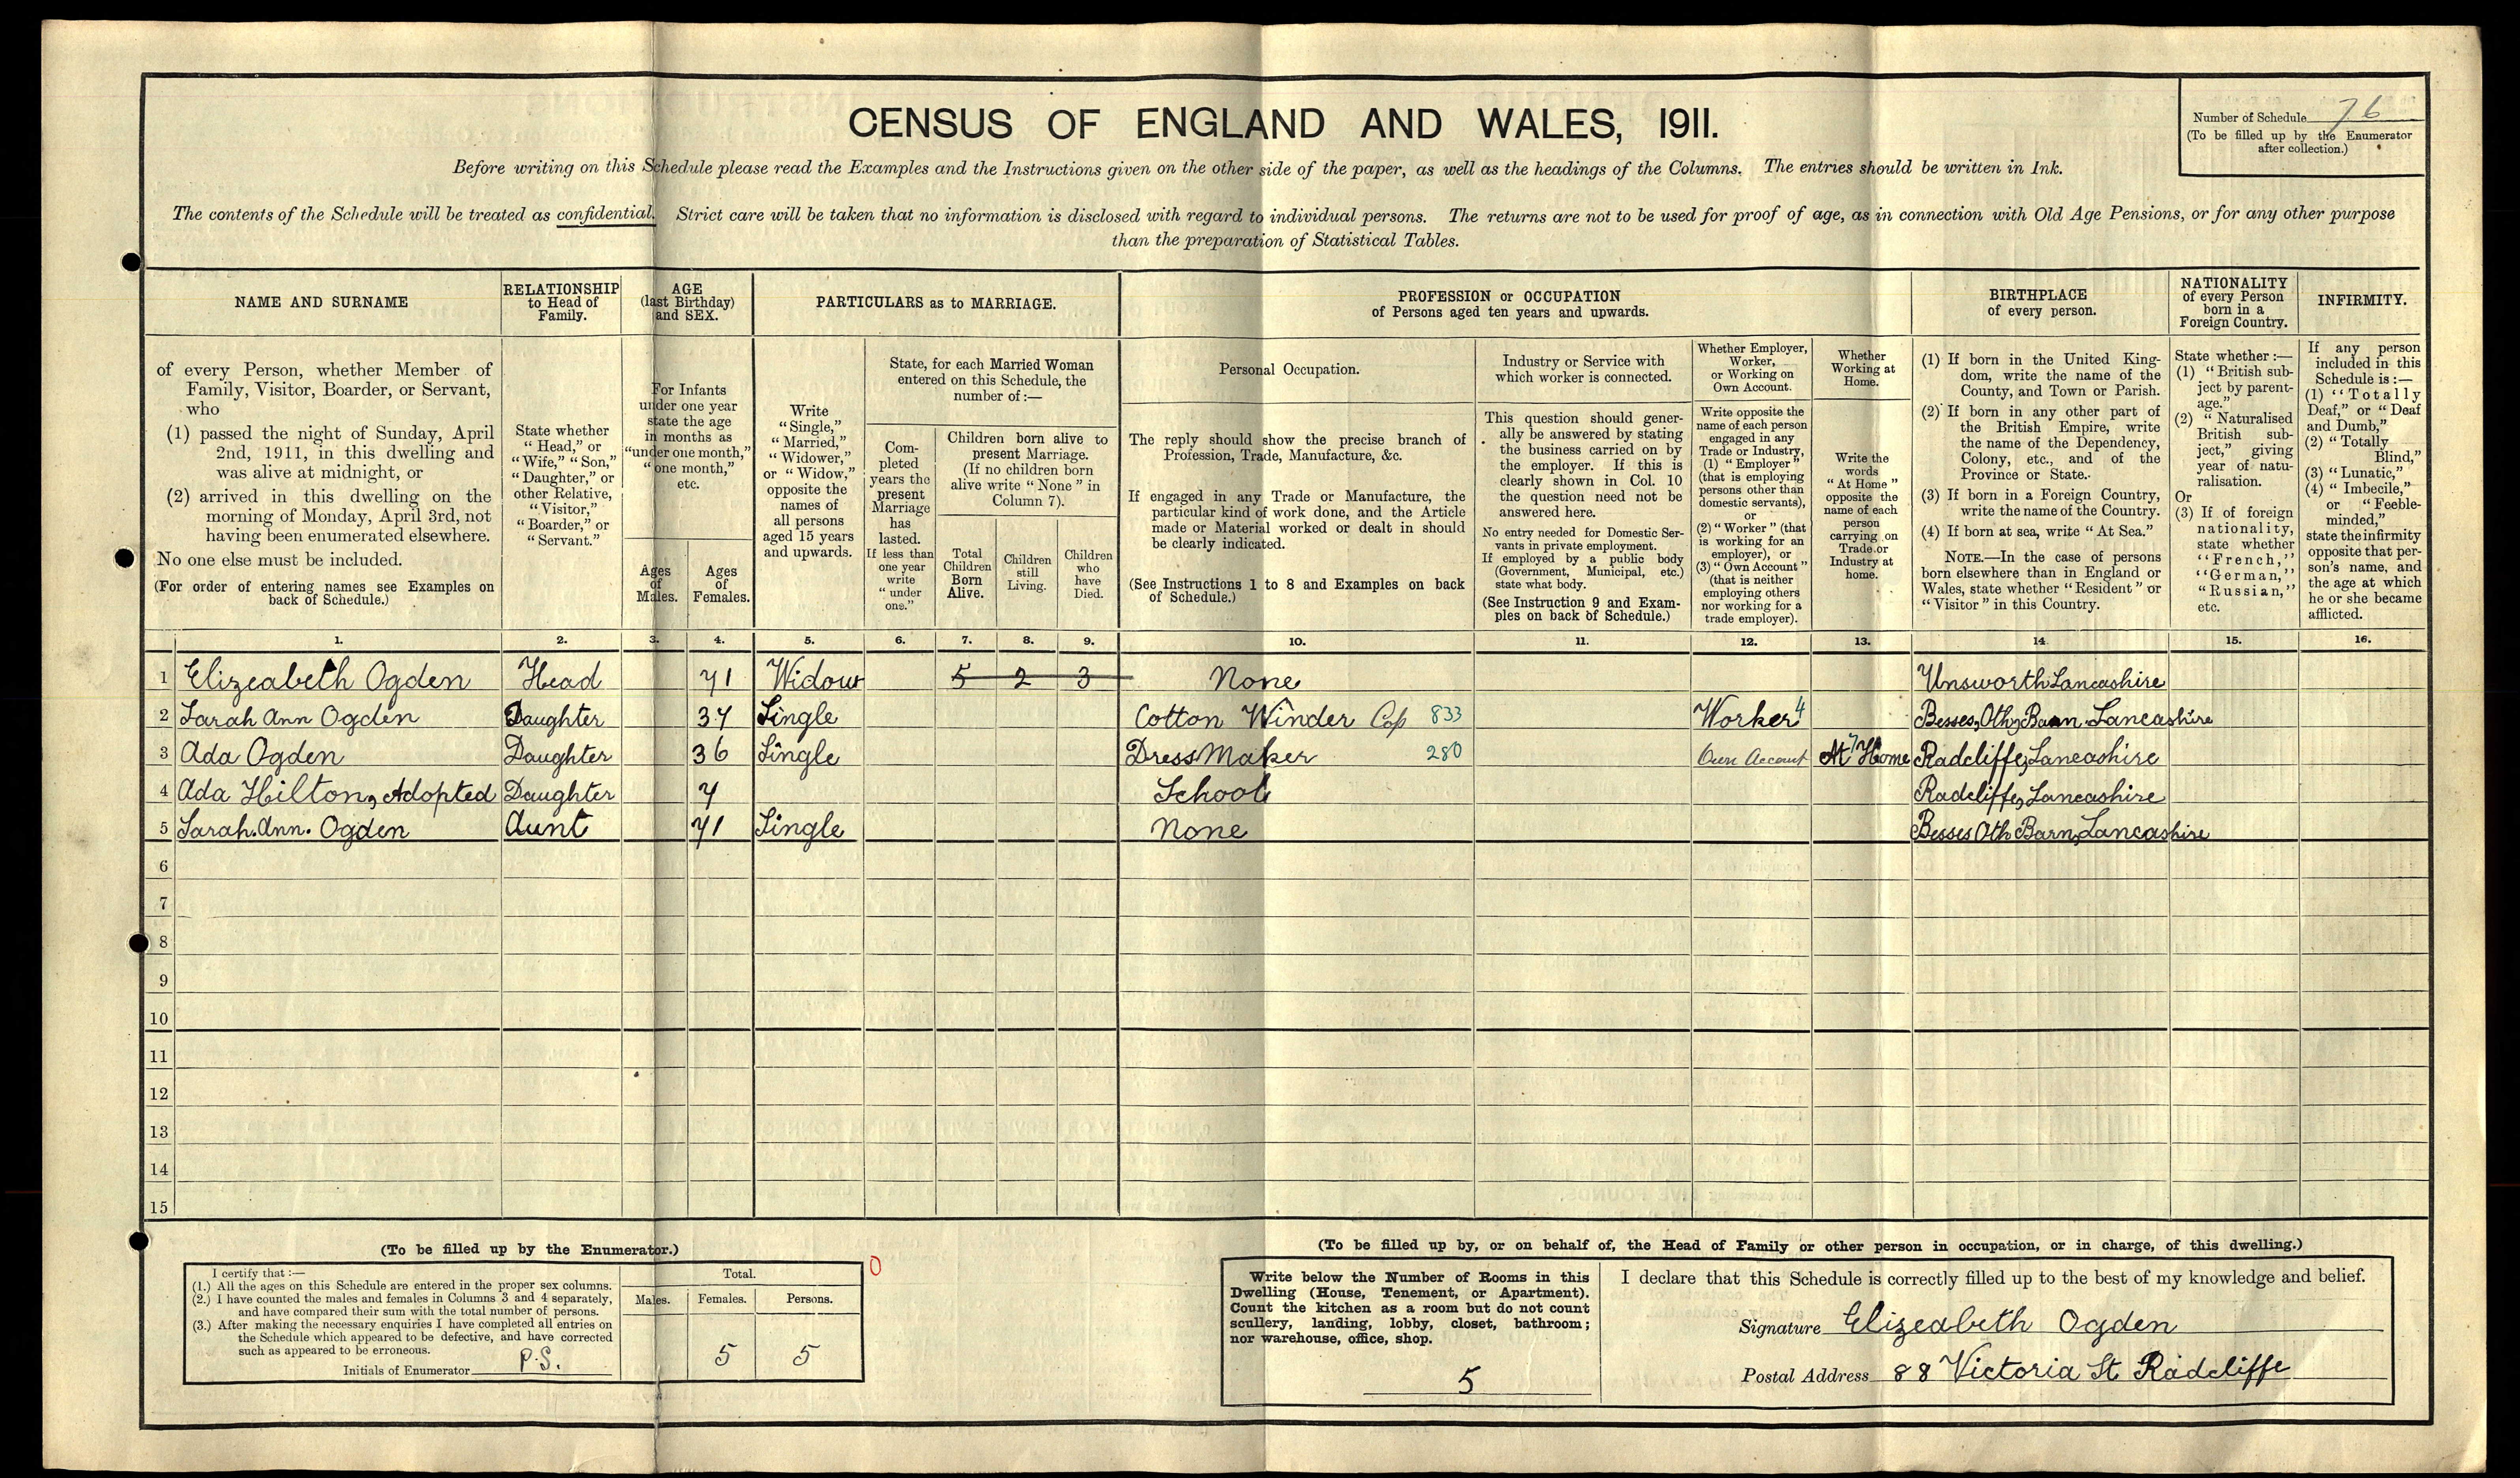 CENSUS OF ENGLAND AND WALES, 1911.
Number of Schedule 76
(To be filled up by the Enumerator
after collection.)
Before writing on this Schedule please read the Examples and the Instructions given on the other side of the paper, as well as the headings of the Columns. The entries should be written in Ink.
The contents of the Schedule will be treated as confidential. Strict care will be taken that no information is disclosed with regard to individual persons. The returns are not to be used for proof of age, as in connection with Old Age Pensions, or for any other purpose
than the preparation of Statistical Tables.
NAME AND SURNAME
of every Person, whether Member of
Family, Visitor, Boarder, or Servant,
who
(1) passed the night of Sunday, April
2nd, 1911, in this dwelling and
was alive at midnight, or
(2) arrived in this dwelling on the
morning of Monday, April 3rd, not
having been enumerated elsewhere.
No one else must be included.
(For order of entering names see Examples on
back of Schedule.)
RELATIONSHIP
to Head of
Family.
State whether
"Head," or
"Wife," "Son,"
"Daughter," or
other Relative,
"Visitor,"
"Boarder," or
"Servant."
AGE
(last Birthday)
and SEX.
For Infants
under one year
state the age
in months as
"under one month,"
"one month,"
etc.
Ages
of
Males.
Ages
of
Females.
PARTICULARS as to MARRIAGE.
Write
"Single,"
"Married,"
"Widower,"
or "Widow,"
opposite the
names of
all persons
aged 15 years
and upwards.
State, for each Married Woman
entered on this Schedule, the
number of :—
Com-
pleted
years the
present
Marriage
has
lasted.
If less than
one year
write
"under
one."
Children born alive to
present Marriage.
(If no children born
alive write "None" in
Column 7).
Total
Children
Born
Alive.
Children
still
Living.
Children
who
have
Died.
PROFESSION or OCCUPATION
of Persons aged ten years and upwards.
Personal Occupation.
The reply should show the precise branch of
Profession, Trade, Manufacture, &c.
If engaged in any Trade or Manufacture, the
particular kind of work done, and the Article
made or Material worked or dealt in should
be clearly indicated.
(See Instructions 1 to 8 and Examples on back
of Schedule.)
Industry or Service with
which worker is connected.
This question should gener-
ally be answered by stating
the business carried on by
the employer. If this is
clearly shown in Col. 10
the question need not be
answered here.
No entry needed for Domestic Ser-
vants in private employment.
If employed by a public body
(Government, Municipal, etc.)
state what body.
(See Instruction 9 and Exam-
ples on back of Schedule.)
Whether Employer,
Worker,
or Working on
Own Account.
Write opposite the
name of each person
engaged in any
Trade or Industry,
(1) "Employer"
(that is employing
persons other than
domestic servants),
or
(2) "Worker" (that
is working for an
employer), or
(3) "Own Account"
(that is neither
employing others
nor working for a
trade employer).
Whether
Working at
Home.
Write the
words
"At Home"
opposite the
name of each
person
carrying on
Trade or
Industry at
home.
BIRTHPLACE
of every person.
(1) If born in the United King-
dom, write the name of the
County, and Town or Parish.
(2) If born in any other part of
the British Empire, write
the name of the Dependency,
Colony, etc., and of the
Province or State.
(3) If born in a Foreign Country,
write the name of the Country.
(4) If born at sea, write "At Sea."
NOTE.—In the case of persons
born elsewhere than in England or
Wales, state whether "Resident" or
"Visitor" in this Country.
NATIONALITY
of every Person
born in a
Foreign Country.
State whether :—
(1) "British sub-
ject by parent-
age."
(2) "Naturalised
British sub-
ject," giving
year of natu-
ralisation.
Or
(3) If of foreign
nationality,
state whether
"French,"
"German,"
"Russian,"
etc.
INFIRMITY.
If any person
included in this
Schedule is :—
(1) "Totally
Deaf," or "Deaf
and Dumb,"
(2) "Totally
Blind,"
(3) "Lunatic,"
(4) "Imbecile,"
or "Feeble-
minded,"
state the infirmity
opposite that per-
son's name, and
the age at which
he or she became
afflicted.
1. 2. 3. 4. 5. 6. 7. 8. 9. 10. 11. 12. 13. 14. 15. 16.
1 Elizeabeth Ogden Head 71 Widow 5 2 3 None Unsworth Lancashire
2 Sarah Ann Ogden Daughter 37 Single Cotton Winder Cop 833 Worker 4 Besses, Oth, Barn. Lancashire
3 Ada Ogden Daughter 36 Single Dress Maker 280 Own Account At 7 Home Radcliffe, Lancashire
4 Ada Hilton, Adopted Daughter 7 School Radcliffe, Lancashire
5 Sarah. Ann. Ogden Aunt 71 Single None Besses Oth Barn, Lancashire
6
7
8
9
10
11
12
13
14
15
(To be filled up by the Enumerator.)
I certify that :—
(1.) All the ages on this Schedule are entered in the proper sex columns.
(2.) I have counted the males and females in Columns 3 and 4 separately,
and have compared their sum with the total number of persons.
(3.) After making the necessary enquiries I have completed all entries on
the Schedule which appeared to be defective, and have corrected
such as appeared to be erroneous.
Initials of Enumerator P.S.
Total.
Males. Females. Persons.
5 5
0
(To be filled up by, or on behalf of, the Head of Family or other person in occupation, or in charge, of this dwelling.)
Write below the Number of Rooms in this
Dwelling (House, Tenement, or Apartment).
Count the kitchen as a room but do not count
scullery, landing, lobby, closet, bathroom;
nor warehouse, office, shop.
5
I declare that this Schedule is correctly filled up to the best of my knowledge and belief.
Signature Elizeabeth Ogden
Postal Address 88 Victoria St Radcliffe